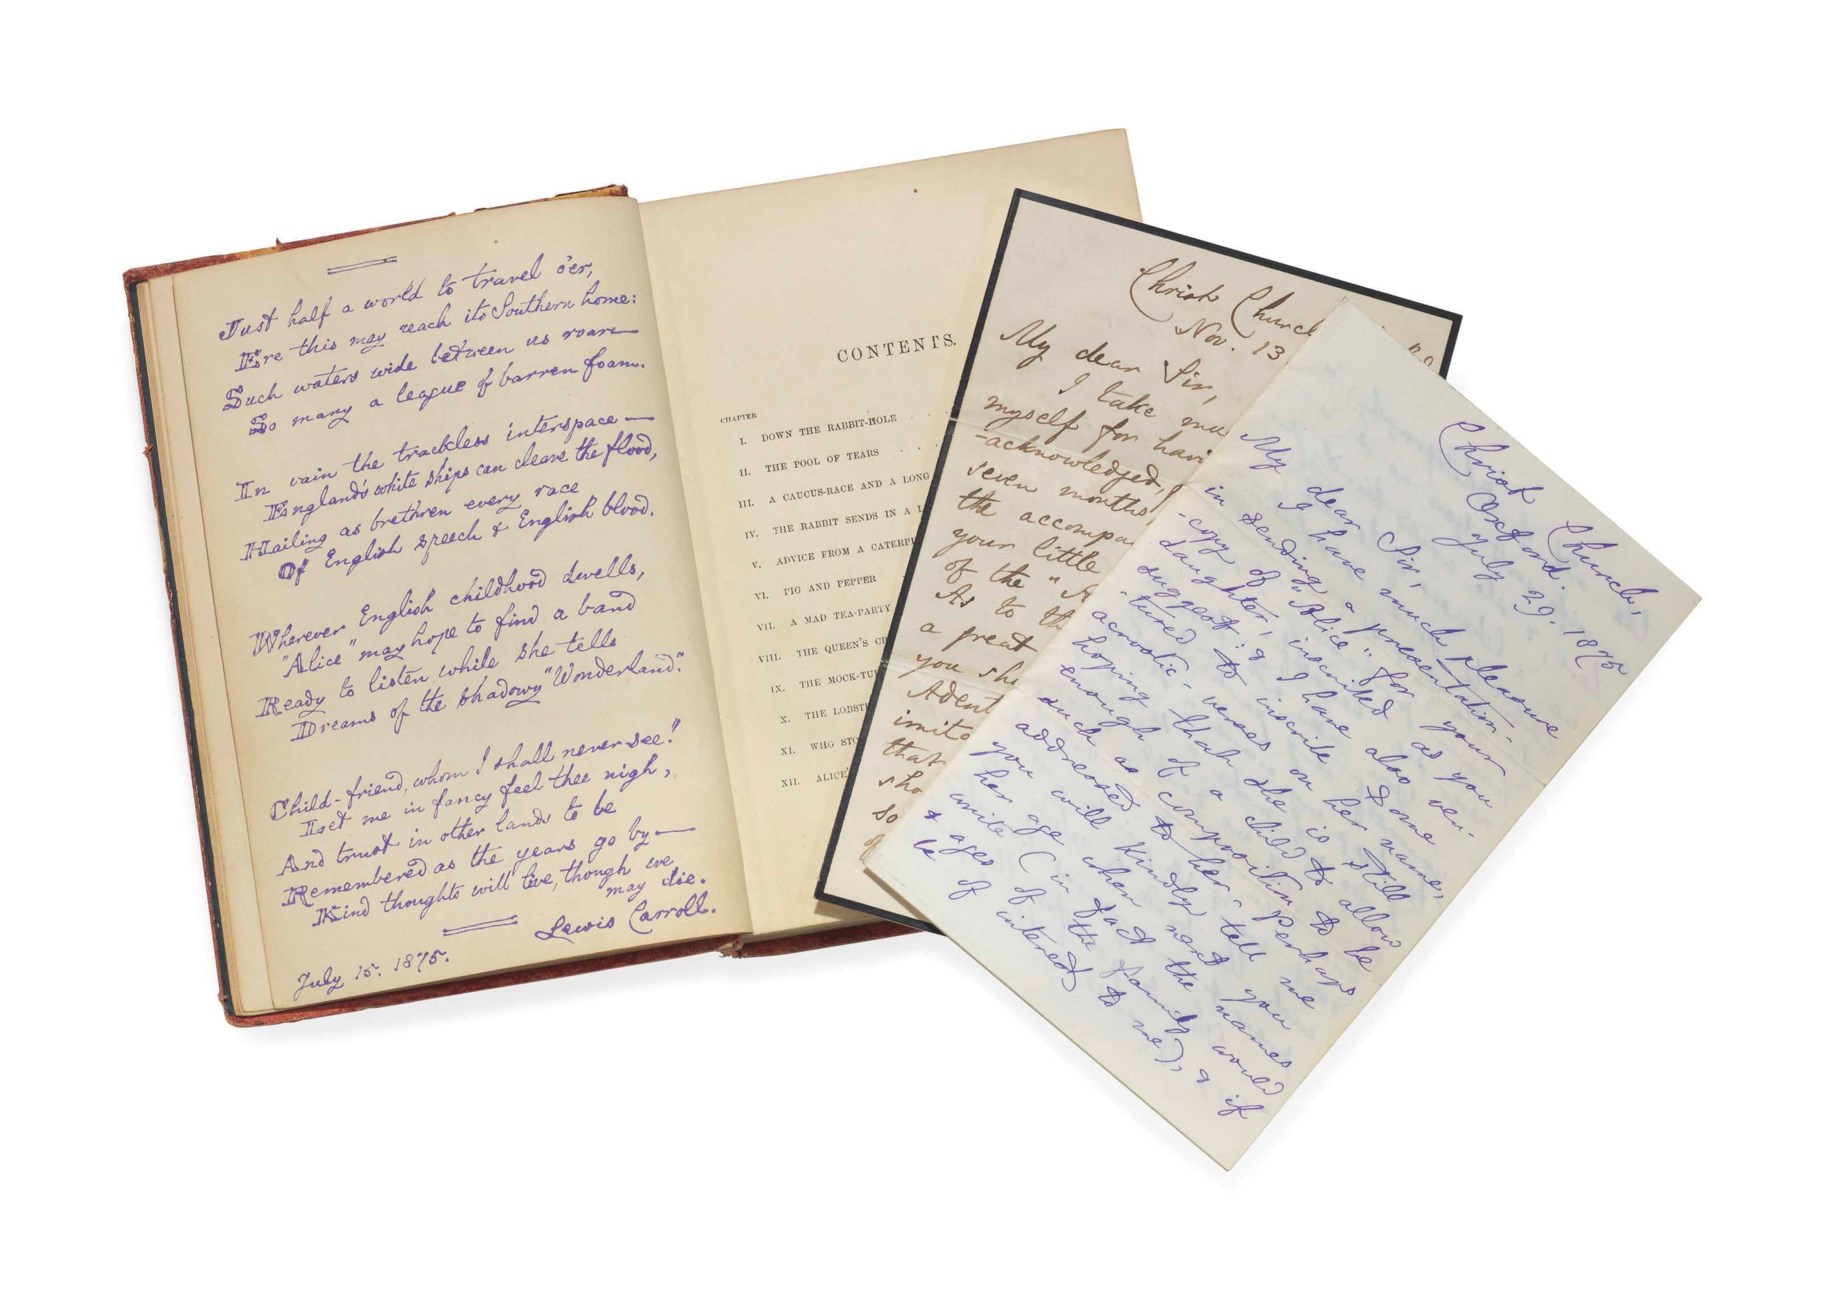 Just half a world to travel o'er,
Ere this may reach its Southern home:
Such waters wide between us roar—
So many a league of barren foam.
In vain the trackless interspace—
England's white ships can cleave the flood,
Hailing as brethren every race
Of English speech & English blood.
Wherever English childhood dwells,
"Alice" may hope to find a band
Ready to listen while she tells
Dreams of the shadowy "Wonderland".
Child-friend, whom I shall never see!
Let me in fancy feel thee nigh,
And trust in other lands to be
Remembered as the years go by—
Kind thoughts will live, though we
may die.
Lewis Carroll.
July 15. 1875.
CONTENTS.
CHAPTER
I. DOWN THE RABBIT-HOLE . . .
II. THE POOL OF TEARS . .
III. A CAUCUS-RACE AND A LONG
IV. THE RABBIT SENDS IN A L
V. ADVICE FROM A CATERP
VI. PIG AND PEPPER
VII. A MAD TEA-PARTY
VIII. THE QUEEN'S CR
IX. THE MOCK-TU
X. THE LOBST
XI. WHO STO
XII. ALICE'
Christ Church
Nov. 13
My dear Sir,
I take
myself for havi
-acknowledged,
seven months,
the accompa
your little
of the "A
As to th
a great
you sh
Adent
imita
that
sho
so
Christ Church,
Oxford.
July 29. 1875
My dear Sir,
I have much pleasure
in sending a presentation-
-copy of "Alice" for your
daughter, inscribed as you
suggest: & I have also ven-
-tured to inscribe some
acrostic-verses on her name,
hoping that she is still
enough of a child to allow
such a composition to be
addressed to her. Perhaps
you will kindly tell me
her age when next you
write (in fact the names
& ages of the family would
be of interest to me), & if